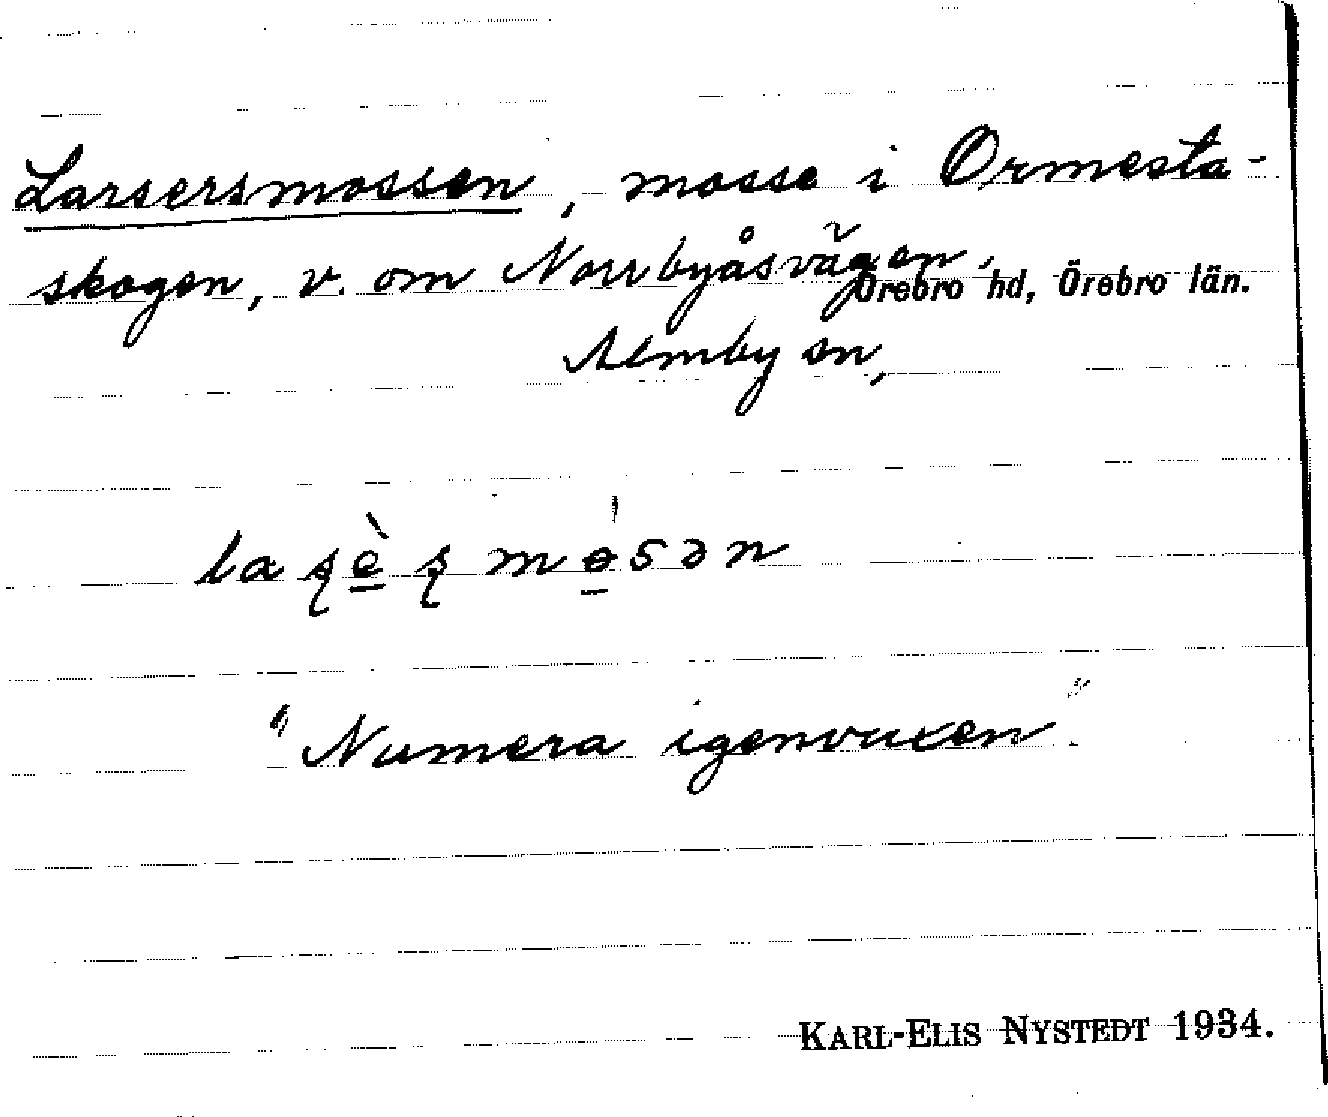 Larsersmossen, mosse i Ormesta-
skogen, v. om Norrbyåsvägen.
Örebro hd, Örebro län.
Almby sn,
laʂèʂmɵ̀sən
"Numera igenvuxen"
KARL-ELIS NYSTEDT 1934.